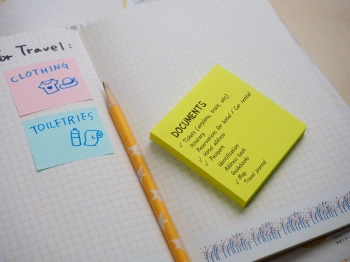 for Travel:
CLOTHING
TOILETRIES
DOCUMENTS
✓ Tickets (airplane, train, etc)
Itinerary
Reservations for hotel / Car rental
✓ Hotel address
✓ Passport
Identification
Address book
Guidebooks
✓ Map
Travel journal